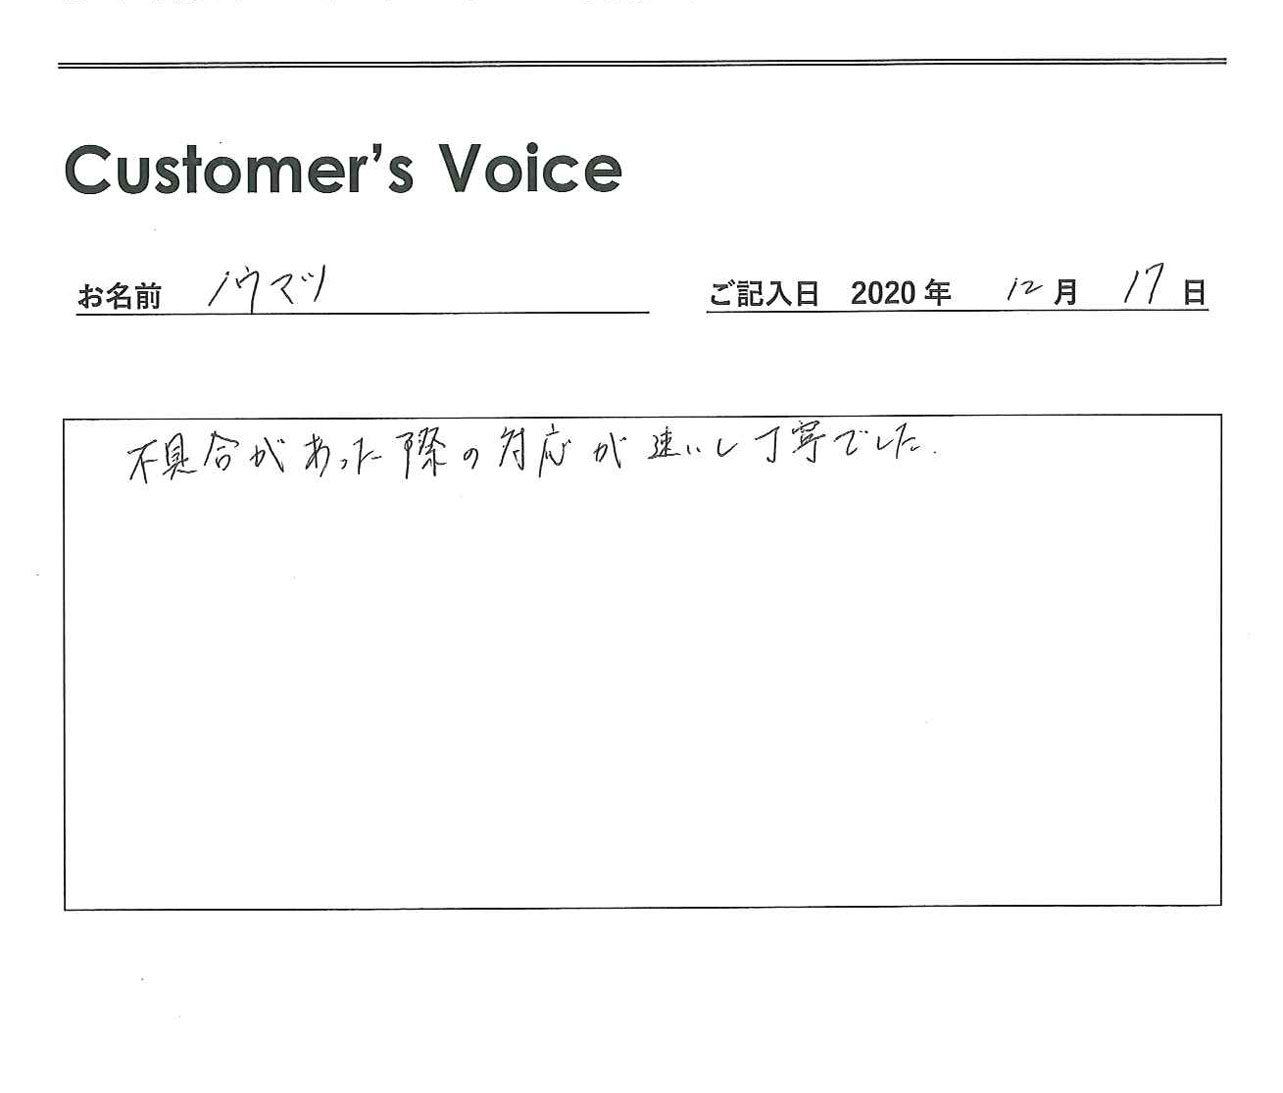 Customer's Voice
お名前 ノウマツ
ご記入日 2020年 12月 17日
不具合があった際の対応が速いし丁寧でした.